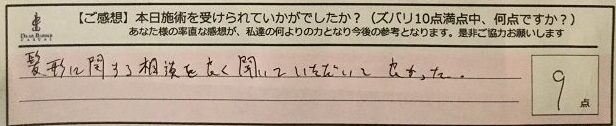 【ご感想】本日施術を受けられていかがでしたか？（ズバリ10点満点中、何点ですか？）
あなた様の率直な感想が、私達の何よりの力となり今後の参考となります。是非ご協力お願いします
髪形に関する相談を良く聞いていただいて良かった。
9点